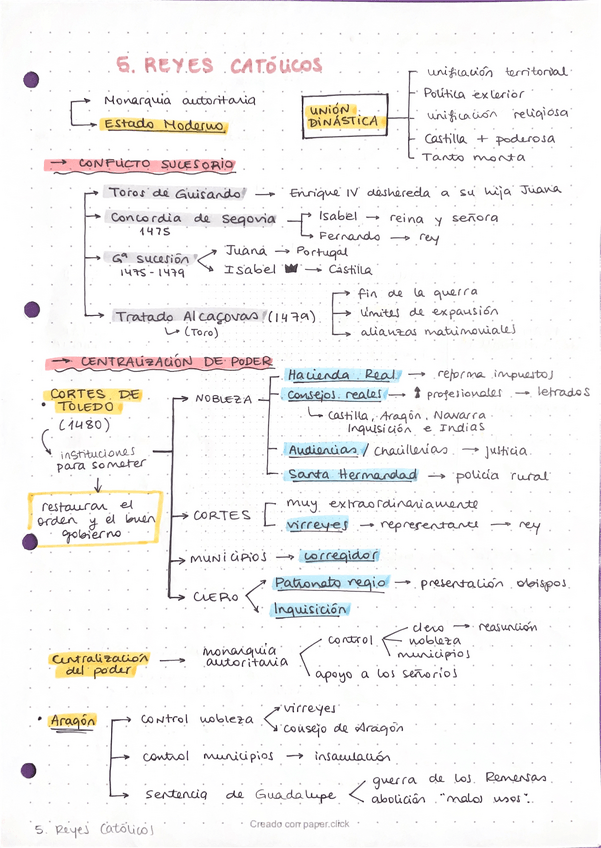 5. REYES CATÓLICOS
→ Monarquía autoritaria
→ Estado Moderno
UNIÓN DINÁSTICA
unificación territorial
Política exterior
unificación religiosa
Castilla + poderosa
Tanto monta
→ CONFLICTO SUCESORIO
→ Toros de Guisando → Enrique IV deshereda a su hija Juana
→ Concordia de Segovia
1475
→ Isabel → reina y señora
→ Fernando → rey
→ Gª sucesión
1475-1479
Juana → Portugal
Isabel → Castilla
→ Tratado Alcaçovas (1479)
↳ (Toro)
→ fin de la guerra
→ límites de expansión
→ alianzas matrimoniales
→ CENTRALIZACIÓN DE PODER
• CORTES DE TOLEDO
(1480)
instituciones
para someter
restaurar el
orden y el buen
gobierno
→ NOBLEZA
Hacienda Real → reforma impuestos
Consejos reales → ↑ profesionales → letrados
↳ Castilla, Aragón, Navarra
Inquisición e Indias
Audiencias / chacillerías → justicia
Santa Hermandad → policía rural
→ CORTES
muy extraordinariamente
virreyes → representante → rey
→ MUNICIPIOS → corregidor
→ CLERO
Patronato regio → presentación obispos
Inquisición
Centralización
del poder
→ monarquía
autoritaria
control
clero → reasunción
nobleza
municipios
apoyo a los señoríos
• Aragón
→ control nobleza
virreyes
consejo de Aragón
→ control municipios → insaculación
→ sentencia de Guadalupe
guerra de los Remensas
abolición "malos usos".
5. Reyes Católicos
Creado con paper.click